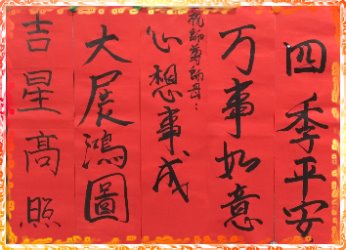 四季平安
万事如意
祝師尊師母：
心想事成
大展鴻圖
吉星高照